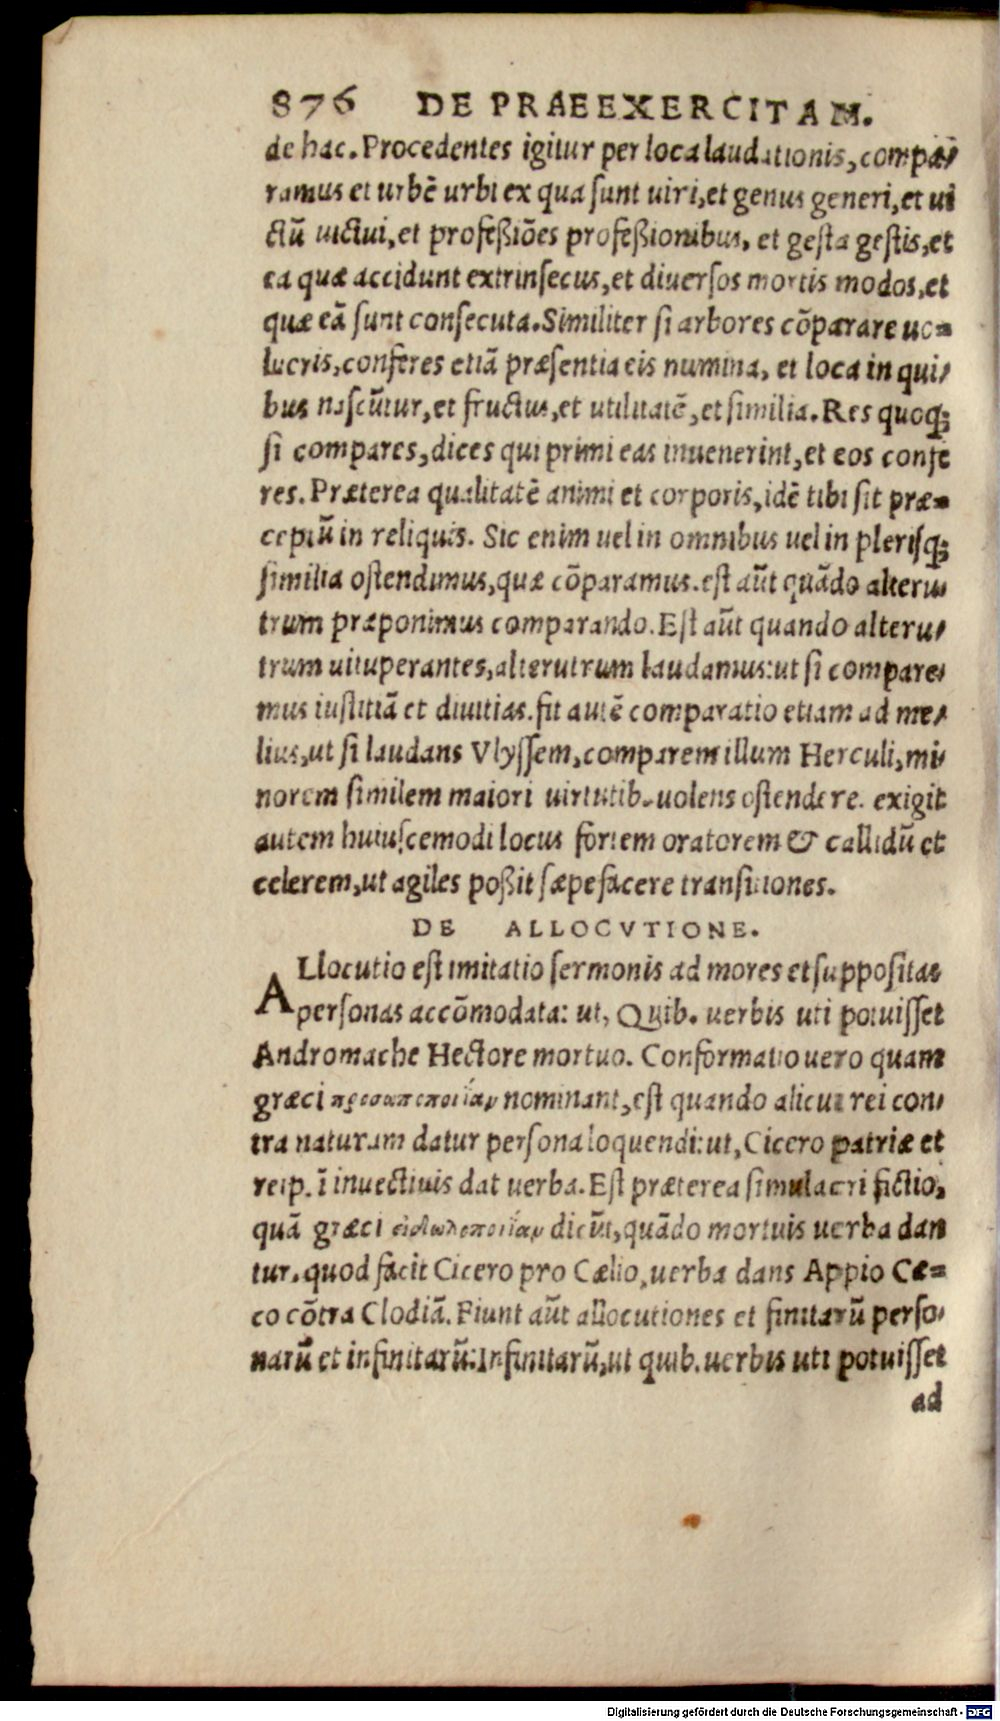 876 DE PRAEEXERCITAM.
de hac. Procedentes igitur per loca laudationis, compa-
ramus et urbē urbi ex qua sunt uiri, et genus generi, et ui
ctū uictui, et profeßiōes profeßionibus, et gesta gestis, et
ea quæ accidunt extrinsecus, et diuersos mortis modos, et
quæ eā sunt consecuta. Similiter si arbores cōparare uo-
lucris, conferes etiā præsentia eis numina, et loca in qui-
bus nascūtur, et fructus, et utilitatē, et similia. Res quoq;
si compares, dices qui primi eas inuenerint, et eos confe
res. Præterea qualitatē animi et corporis, idē tibi sit præ-
ceptū in reliquis. Sic enim uel in omnibus uel in plerisq;
similia ostendimus, quæ cōparamus. est aūt quādo alteru-
trum præponimus comparando. Est aūt quando alteru-
trum uituperantes, alterutrum laudamus: ut si compare-
mus iustitiā et diuitias. fit autē comparatio etiam ad me-
lius, ut si laudans Vlyssem, comparem illum Herculi, mi-
norem similem maiori uirtutib. uolens ostendere. exigit
autem huiuscemodi locus fortem oratorem & callidū et
celerem, ut agiles poßit sæpe facere transitiones.
DE ALLOCVTIONE.
ALlocutio est imitatio sermonis ad mores et suppositas
personas accōmodata: ut, Quib. uerbis uti potuisset
Andromache Hectore mortuo. Conformatio uero quam
græci προσωποποιίαν nominant, est quando alicui rei con-
tra naturam datur persona loquendi: ut, Cicero patriæ et
reip. ī inuectiuis dat uerba. Est præterea simulacri fictio,
quā græci εἰδωλοποιίαν dicūt, quādo mortuis uerba dan
tur. quod facit Cicero pro Cælio, uerba dans Appio Cæ-
co cōtra Clodiā. Fiunt aūt allocutiones et finitarū perso-
narū et infinitarū: Infinitarū, ut quib. uerbis uti potuisset
ad
Digitalisierung gefördert durch die Deutsche Forschungsgemeinschaft - DFG